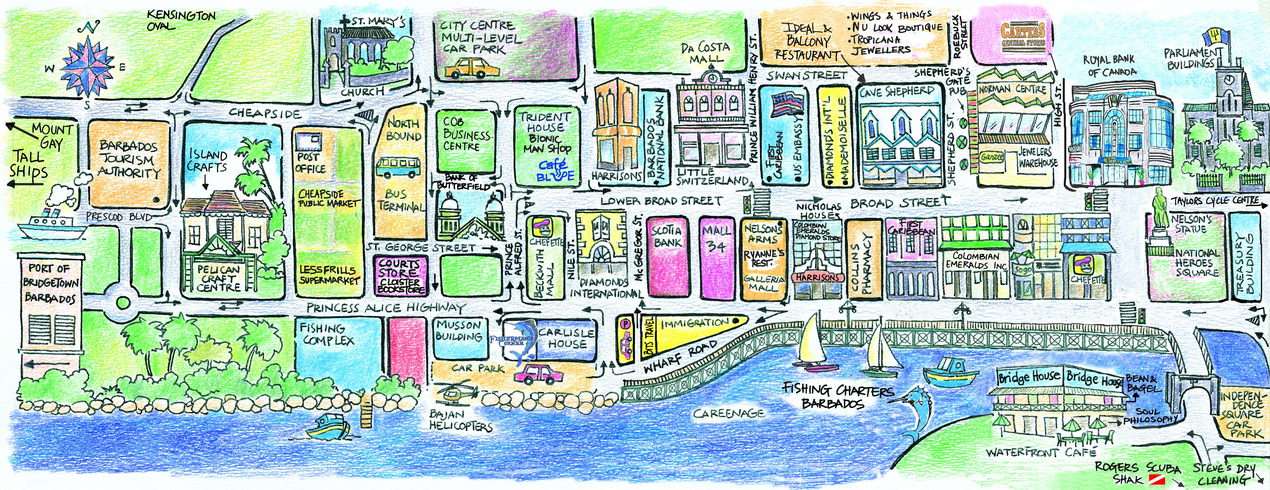 KENSINGTON
OVAL
ST. MARY'S
CHURCH
CITY CENTRE
MULTI-LEVEL
CAR PARK
DA COSTA
MALL
PRINCE WILLIAM HENRY ST.
IDEAL &
BALCONY
RESTAURANT
• WINGS & THINGS
• NU LOOK BOUTIQUE
• TROPICANA
JEWELLERS
SWAN STREET
ROEBUCK
STREET
SHEPHERD'S
GATE
PUB
ROYAL BANK
OF CANADA
PARLIAMENT
BUILDINGS
N
W
E
S
CHEAPSIDE
MOUNT
GAY
TALL
SHIPS
BARBADOS
TOURISM
AUTHORITY
ISLAND
CRAFTS
POST
OFFICE
CHEAPSIDE
PUBLIC MARKET
LESSFRILLS
SUPERMARKET
NORTH
BOUND
BUS
TERMINAL
COB
BUSINESS
CENTRE
BANK OF
BUTTERFIELD
TRIDENT
HOUSE
BIONIC
MAN SHOP
Café
BLUE
HARRISONS
BARBADOS
NATIONAL BANK
LITTLE
SWITZERLAND
FIRST
CARIBBEAN
US EMBASSY
DIAMONDS INT'L
MADEMOISELLE
CAVE SHEPHERD
SHEPHERD ST.
NORMAN CENTRE
JEWELERS
WAREHOUSE
HIGH ST.
PRESCOD BLVD
LOWER BROAD STREET
BROAD STREET
TAYLORS CYCLE CENTRE
PELICAN
CRAFT
CENTRE
ST. GEORGE STREET
COURTS
STORE
CLOISTER
BOOKSTORE
PRINCE
ALFRED ST.
CHEFETTE
BECKWITH
MALL
NILE ST.
DIAMONDS
INTERNATIONAL
McGREGOR ST.
SCOTIA
BANK
MALL
34
NELSON'S
ARMS
RYANNE'S
REST.
GALLERIA
MALL
NICHOLAS
HOUSE
COLOMBIAN
EMERALDS
DIAMOND STORE
HARRISONS
COLLINS
PHARMACY
FIRST
CARIBBEAN
COLOMBIAN
EMERALDS INC.
CHEFETTE
NELSON'S
STATUE
NATIONAL
HEROES
SQUARE
TREASURY
BUILDING
PORT OF
BRIDGETOWN
BARBADOS
PRINCESS ALICE HIGHWAY
FISHING
COMPLEX
MUSSON
BUILDING
CAR PARK
FISHERMANS
CORNER
CARLISLE
HOUSE
P
BITS TRAVEL
IMMIGRATION
WHARF ROAD
BAJAN
HELICOPTERS
CAREENAGE
FISHING CHARTERS
BARBADOS
Bridge House
Bridge House
BEAN &
BAGEL
SOUL
PHILOSOPHY
WATERFRONT CAFÉ
INDEPEN-
DENCE
SQUARE
CAR
PARK
ROGERS SCUBA
SHAK
STEVE'S DRY
CLEANING